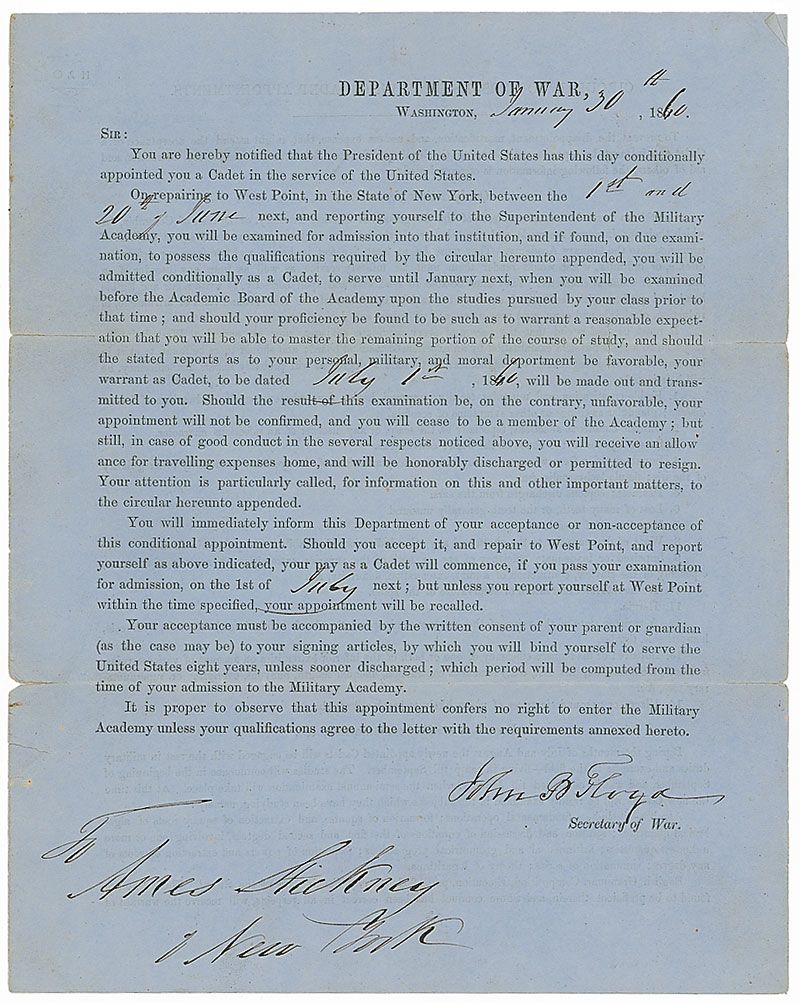 DEPARTMENT OF WAR,
WASHINGTON, January 30th, 1860.
SIR:
You are hereby notified that the President of the United States has this day conditionally
appointed you a Cadet in the service of the United States.
On repairing to West Point, in the State of New York, between the 1st and
20th of June next, and reporting yourself to the Superintendent of the Military
Academy, you will be examined for admission into that institution, and if found, on due exami-
nation, to possess the qualifications required by the circular hereunto appended, you will be
admitted conditionally as a Cadet, to serve until January next, when you will be examined
before the Academic Board of the Academy upon the studies pursued by your class prior to
that time; and should your proficiency be found to be such as to warrant a reasonable expect-
ation that you will be able to master the remaining portion of the course of study, and should
the stated reports as to your personal, military, and moral deportment be favorable, your
warrant as Cadet, to be dated July 1st, 1860, will be made out and trans-
mitted to you. Should the result of this examination be, on the contrary, unfavorable, your
appointment will not be confirmed, and you will cease to be a member of the Academy; but
still, in case of good conduct in the several respects noticed above, you will receive an allow
ance for travelling expenses home, and will be honorably discharged or permitted to resign.
Your attention is particularly called, for information on this and other important matters, to
the circular hereunto appended.
You will immediately inform this Department of your acceptance or non-acceptance of
this conditional appointment. Should you accept it, and repair to West Point, and report
yourself as above indicated, your pay as a Cadet will commence, if you pass your examination
for admission, on the 1st of July next; but unless you report yourself at West Point
within the time specified, your appointment will be recalled.
Your acceptance must be accompanied by the written consent of your parent or guardian
(as the case may be) to your signing articles, by which you will bind yourself to serve the
United States eight years, unless sooner discharged; which period will be computed from the
time of your admission to the Military Academy.
It is proper to observe that this appointment confers no right to enter the Military
Academy unless your qualifications agree to the letter with the requirements annexed hereto.
John B Floyd
Secretary of War.
To
Ames Stickney
New York